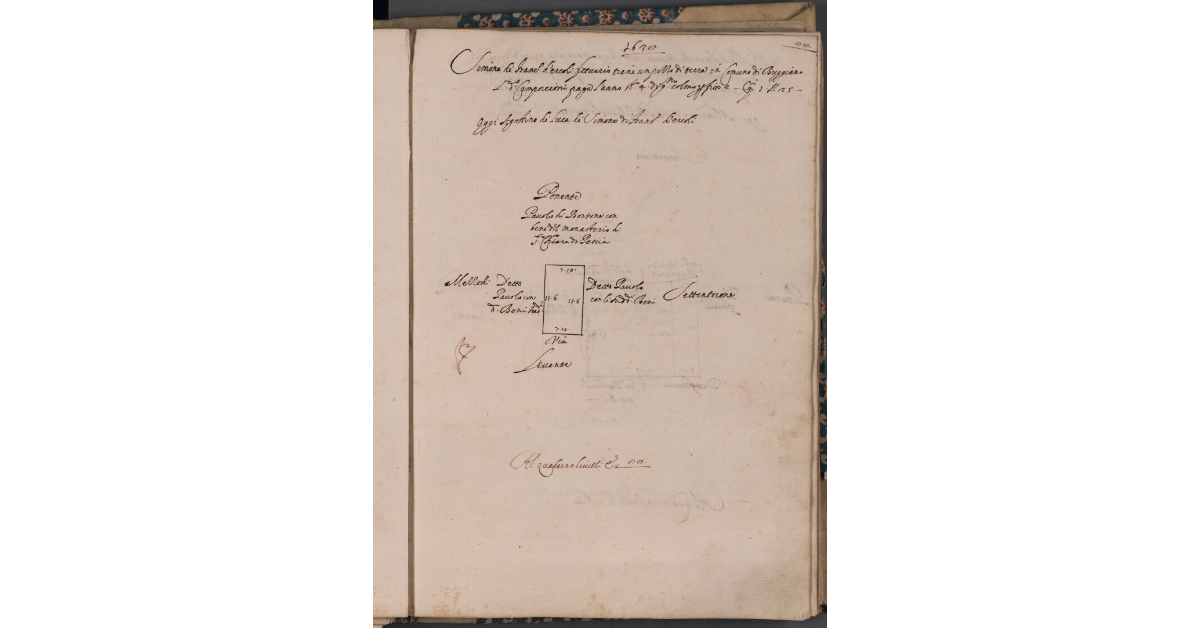 1630
Simone di Franc.º d'ercoli fittuario tiene un pezzo di terra in Comuno di Buggian.
L. d.º Campaccioni paga l'anno
Oggi Agostino di Luca di Simone di Franc.º d'ercoli
Ponente
Pavolo di Bastone con
beni del monasterio di
S. Chiara di Pescia
7.10.
Mezzodi Detto
Pavolo con
d. Beni
15.6 15.6
Detto Pavolo
con li d. Beni
Settentrione
7.10.
Via
Levante
Al quaderno livelli